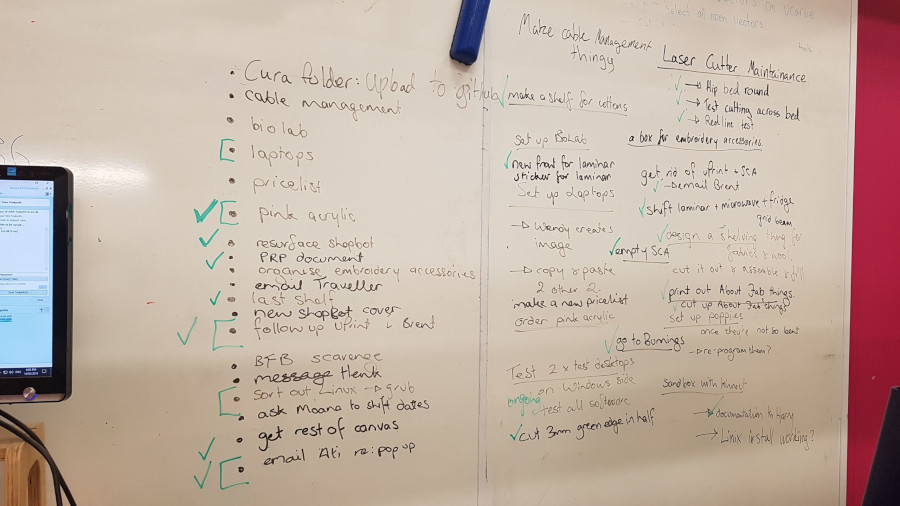 • Cura folder: Upload to github
• cable management
• bio lab
• laptops
• pricelist
• pink acrylic
• resurface shopbot
• PRP document
• organise embroidery accessories
• email Traveller
• last shelf
• new shopbot cover
• follow up Uprint & Brent
• BFB scavenge
• message Henk
• sort out Linux → grub
• ask Moana to shift dates
• get rest of canvas
• email Ati re: pop up
Make cable Management
thingy
make a shelf for cottons
set up BioLab
new front for laminar
sticker for laminar
Set up Laptops
→ Wendy creates
image
→ copy & paste
2 other 2.
make a new pricelist
order pink acrylic
go to Bunnings
Test 2 x test desktops
on Windows side
ongoing
test all software
cut 3mm green edge in half
select all open vectors
Laser Cutter Maintainance
→ flip bed round
→ Test cutting across bed
→ Red line test
a box for embroidery accessories.
get rid of uprint + SCA
→ email Brent
shift laminar + microwave + fridge
grid beam
design a shelving thing for
fabrics & wool.
empty SCA
cut it out & assemble & fill
print out About Fab things.
cut up About Fab things
set up poppies
once they're not so bent
→ re-program them?
Sandbox with kinect
→ documentation to Harry
→ Linix install working?